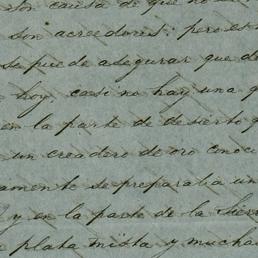 son causa de que no
son acreedores: pero es
se puede asegurar que d
e hoy, casi no hay una q
en la parte de desierto q
e un creadero de oro conoci
amente se preparaba un
y en la parte de la Sierr
e plata mista y mucha